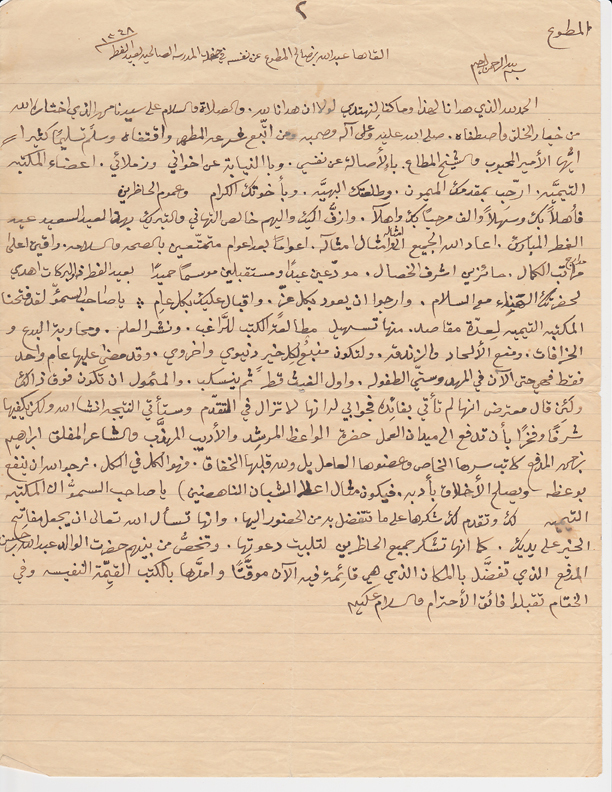 ٢
المطوع
القاها عبدالله بن صالح المطوع عن نفسه في حفلة المدرسة الصالحية لعيد الفطر ١٣٤٨
بسم الله الرحمن الرحيم
الحمد لله الذي هدانا لهذا وما كنا لنهتدي لولا ان هدانا الله. والصلاة والسلام على سيدنا محمد الذي اختاره الله
من خيار الخلق واصطفاه. صلى الله عليه وعلى آله وصحبه ومن اتبع شرعه المطهر واقتفاه وسلم تسليما كثيرا
ايها الأمير المحبوب والشيخ المطاع. بالأصالة عن نفسي. وبالنيابة عن اخواني وزملائي. اعضاء المكتبة
التيميّة. ارحّب بمقدمك الميمون. وطلعتك البهيّة. وبأخوتك الكرام وعموم الحاظرين
فأهلاً بك وسهلاً والف مرحبًا بك واهلاً. وازفّ اليك واليهم خالص التهاني والتبريك بهذا العيد السعيد عيد
الفطر المبارك. اعاد الله الجميع الى امثال امثاله. اعوامًا بعد اعوام متمتعين بالصحه والسلامه. راقين اعلى
مراتب الكمال. حائزين اشرف الخصال. مودّعين عيدًا ومستقبلين موسمًا حميدًا بعيد الفطر ذي البركات اهدي
لحضرتك الهناء مع السلام. وارجوا ان يعود بكل عزّ. واقبال عليك بكل عام ; ياصاحب السموّ لقد فتحنا
المكتبه التيميه لعدة مقاصد. منها تسهيل مطالعة الكتب للرّاغب. ونشر العلم. ومحاربة البدع و
الخرافات. ومنع الألحاد والزندقه. ولتكون منبع لكل خير دنيوي وأخروي. وقد مضى عليها عام واحد
فقط فهي حتى الآن في المهد وسنّي الطفول. واول الغيث قطٌ ثم ينسكب. والمئمول ان تكون فوق ذالك
ولئن قال معترض انها لم تأتي بفائده فجوابي له انها لا تزال في المتقدم وستأتي النتيجه انشا الله ولكن يكفيها
شرفًا وفخرًا بأن تدفع الى ميدان العمل حضرة الواعظ المرشد والأديب المهذّب والشاعر المفلق ابراهيم
المدفع كاتب سرها الخاص وعضوها العامل بل وقلبها الخفاق. وهو الكل في الكل. نرجوا الله ان ينفع
بوعظه ويصلح الأخلاق بأدبه. فيكون مثال اعلا الشبان الناهضين) ياصاحب السموّ ان المكتبه
التيميه لك وتقدم لك شكرها على ما تتفضل به من الحضور اليها. وانها تسأل الله تعالى ان يجعل مفاتيح
الخير على يديك. كما انها تشكر جميع الحاظرين لتلبيت دعوتها. وتخصّ من بينهم حضرت الوالد عبدالله بن حسن
المدفع الذي تفضّل بالمكان الذي هي قائمة فيه الآن موقّتًا وامدّها بالكتب القيّمة النفيسه وفي
الختام تقبلوا فائق الأحترام والسلام عليكم